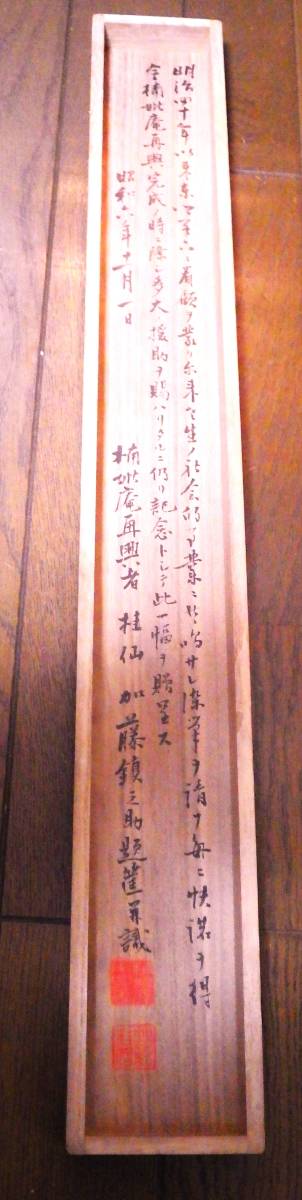 明治四十年以来東  眷顧ヲ蒙リ尓来    生ノ社会的事業ニ共鳴サレ染筆ヲ請フ毎ニ快諾ヲ得
今楠妣庵再興完成ノ時ニ際シ多大ノ援助ヲ賜ハリタルニ仍リ記念トシテ此一幅ヲ贈呈ス
昭和六年十一月一日
楠妣庵再興者 桂仙 加藤鎮之助題筐并識